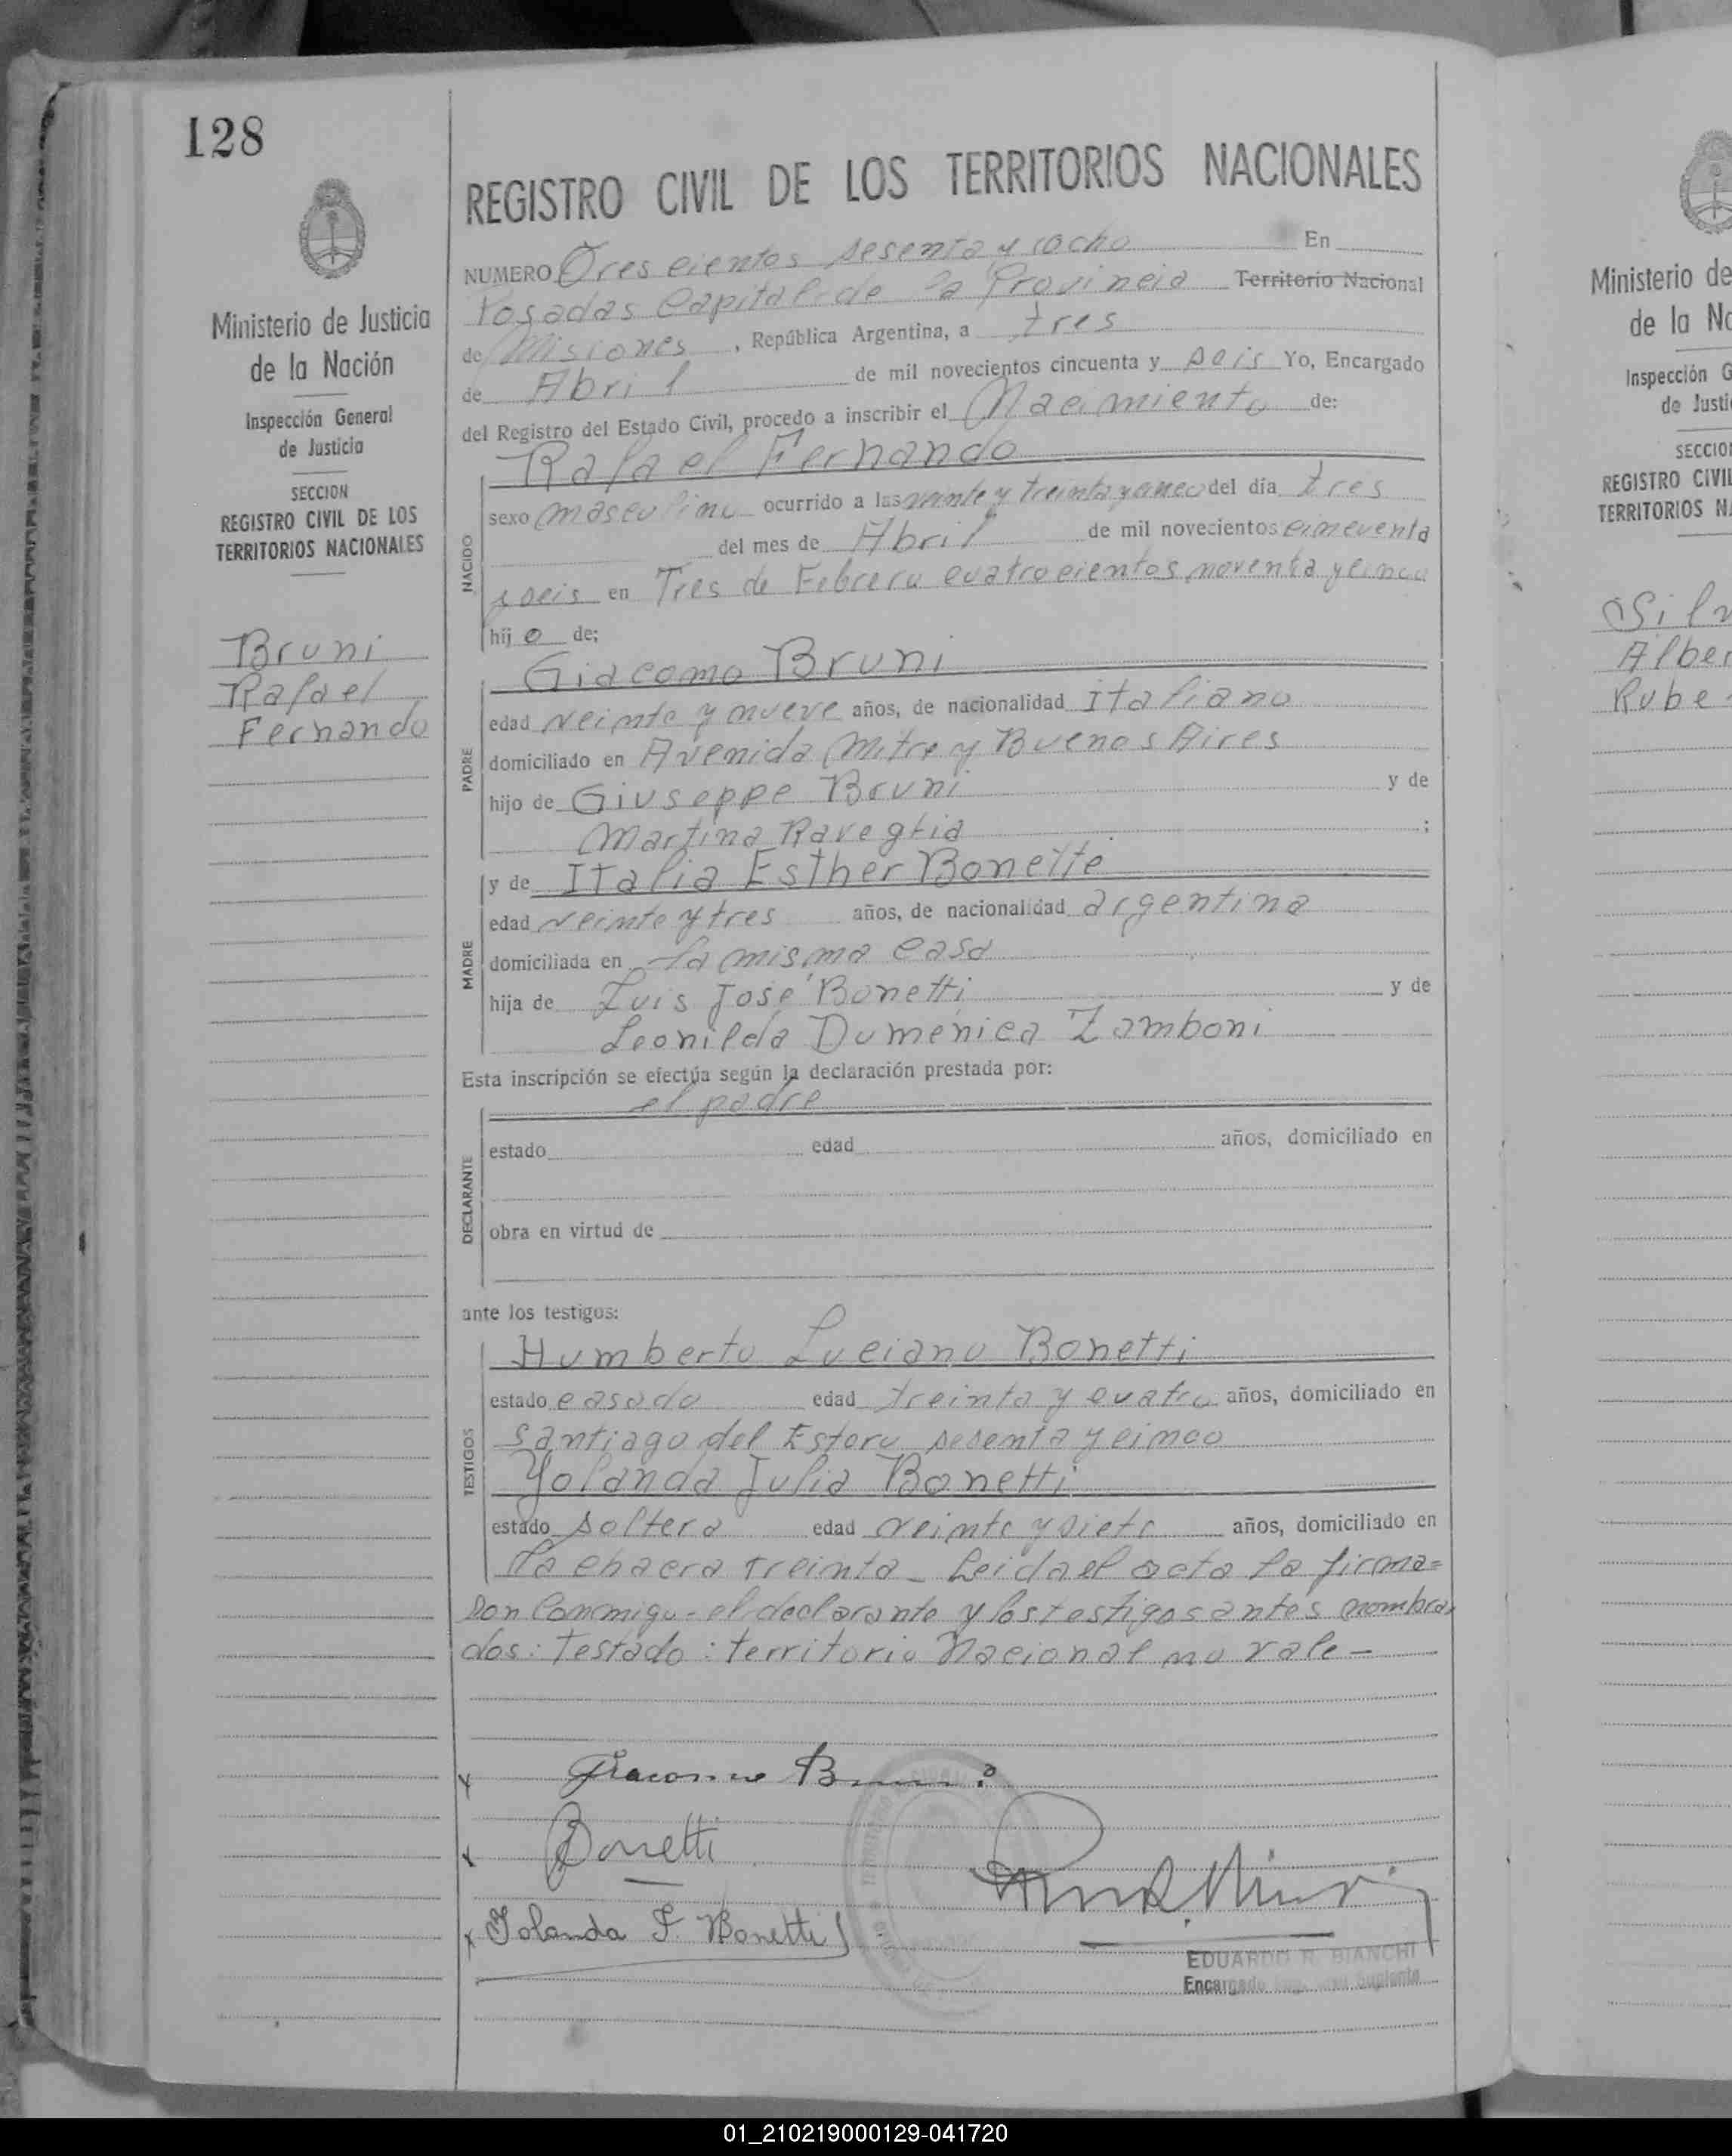 128
REGISTRO CIVIL DE LOS TERRITORIOS NACIONALES
NUMERO Trescientos sesenta y ocho En
Posadas Capital de la Provincia Territorio Nacional
de Misiones, República Argentina, a tres
de Abril de mil novecientos cincuenta y seis Yo, Encargado
del Registro del Estado Civil, procedo a inscribir el Nacimiento de:
Ministerio de Justicia
de la Nación
Inspección General
de Justicia
SECCION
REGISTRO CIVIL DE LOS
TERRITORIOS NACIONALES
Bruni
Rafael
Fernando
NACIDO
Rafael Fernando
sexo masculino ocurrido a las veinte y treinta y cinco del día tres
del mes de Abril de mil novecientos cincuenta
y seis en Tres de Febrero cuatrocientos noventa y cinco
hijo de;
PADRE
Giacomo Bruni
edad veinte y nueve años, de nacionalidad italiano
domiciliado en Avenida Mitre y Buenos Aires
hijo de Giuseppe Bruni y de
Martina Raveglia;
MADRE
y de Italia Esther Bonette
edad veinte y tres años, de nacionalidad argentina
domiciliada en la misma casa
hija de Luis José Bonetti y de
Leonilda Duménica Zamboni
Esta inscripción se efectúa según la declaración prestada por:
DECLARANTE
el padre
estado edad años, domiciliado en
obra en virtud de
ante los testigos:
TESTIGOS
Humberto Luciano Bonetti
estado casado edad treinta y cuatro años, domiciliado en
Santiago del Estero sesenta y cinco
Yolanda Julia Bonetti
estado soltera edad veinte y siete años, domiciliado en
la chacra treinta - Leida el acta la firma=
son conmigo - el declarante y los testigos antes nombra
dos: Testado: territorio Nacional no vale -
x Giacomo Bruni
x Bonetti
x Iolanda J. Bonetti
EDUARDO R. BIANCHI
Encargado Suplente
Ministerio de
de la Na
Inspección G
de Justi
SECCION
REGISTRO CIVIL
TERRITORIOS NA
Silv
Alber
Rube
01_210219000129-041720